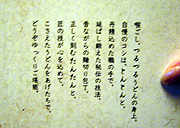 喉ごし、つるつるうどんの身上。
自慢のコシは、とんとんと、
丹精込めた職の手で、
延ばし鍛えた秘伝の技法。
昔ながらの麺切り包丁。
正しく刻むたんたんと。
匠の技が心を込めて、
こさえたうどんをあげたちで、
どうぞゆっくりご堪能。